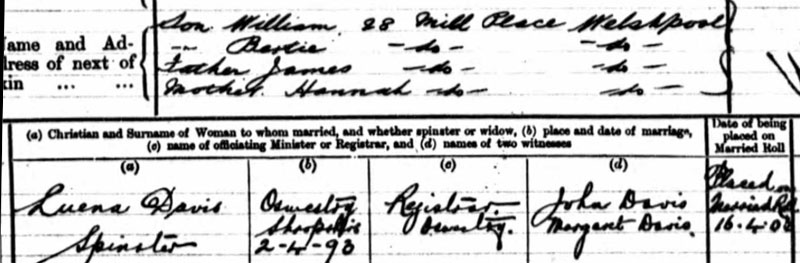 Son William 28 Mill Place Welshpool
Name and Ad- -"- Bertie -do- -do-
dress of next of Father James -do- -do-
kin ... ... Mother Hannah -do- -do-
(a) Christian and Surname of Woman to whom married, and whether spinster or widow, (b) place and date of marriage,
(c) name of officiating Minister or Registrar, and (d) names of two witnesses
Date of being
placed on
Married Roll
(a) (b) (c) (d)
Luena Davis
Spinster
Oswestry
Shropshire
2-4-93
Registrar.
Oswestry.
John Davis
Margaret Davis.
Placed on
Married Roll
16.4.0